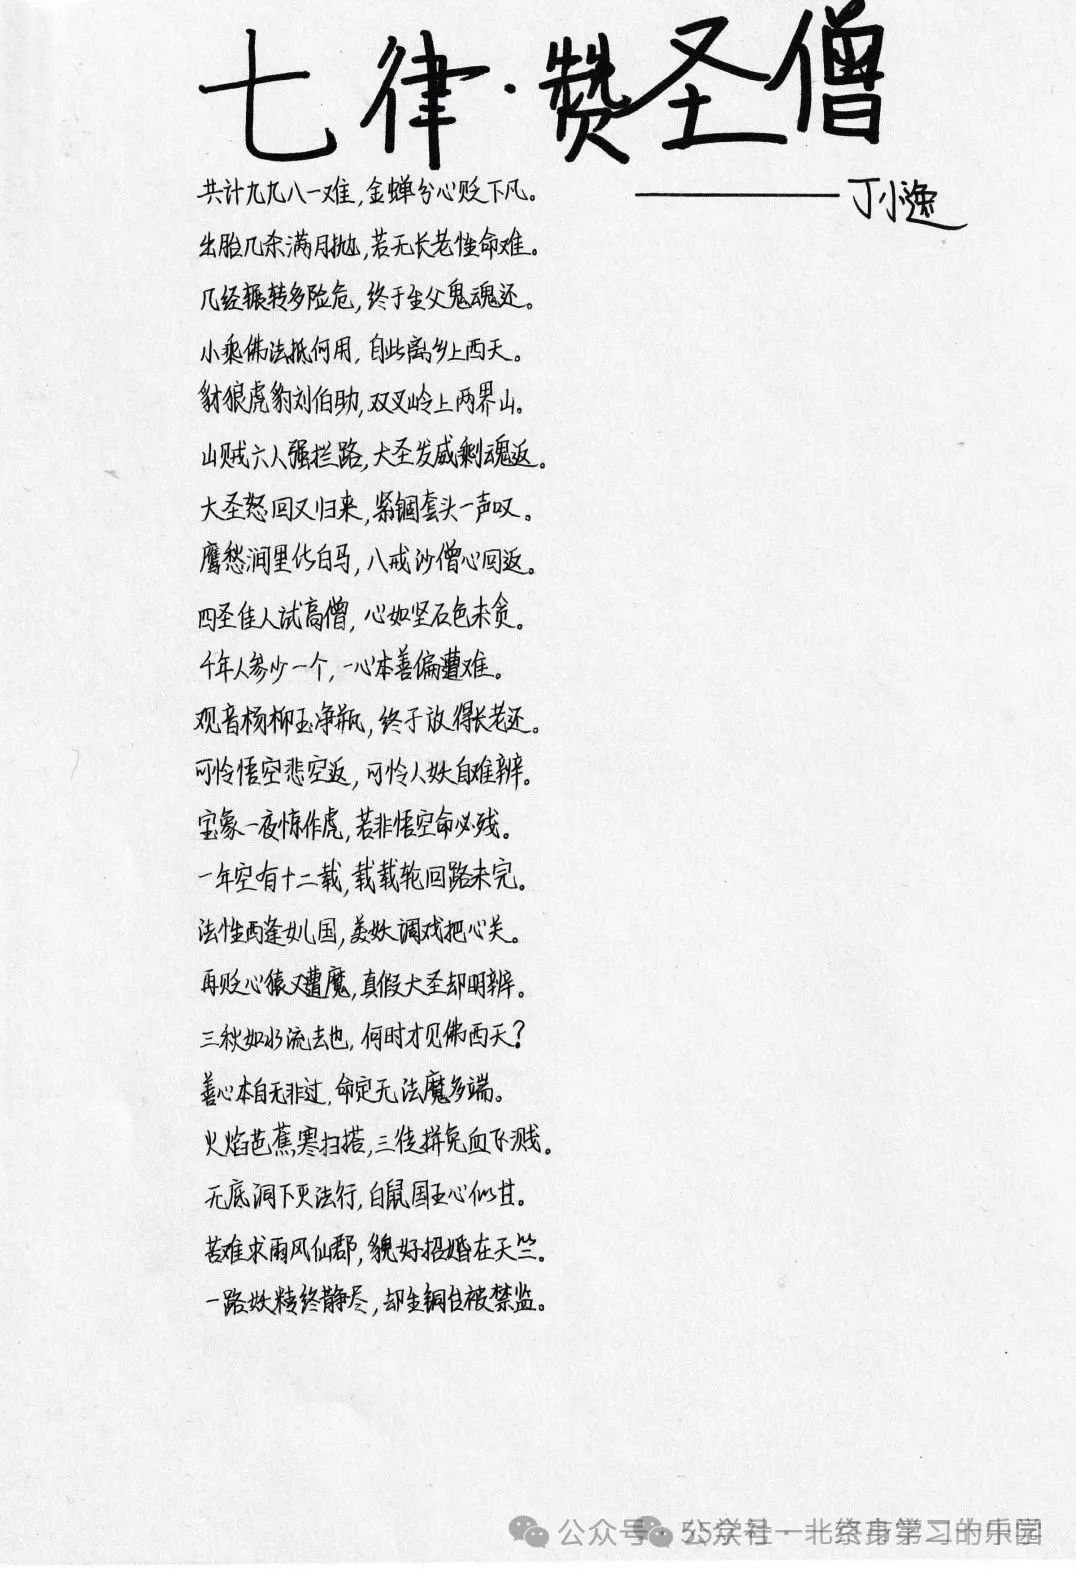 七律·赞圣僧
——丁小逸
共计九九八一难,金蝉分心贬下凡。
出胎几杀满月抛,若无长老性命难。
几经辗转多险危,终于生父鬼魂还。
小乘佛法抵何用,自此离乡上西天。
豺狼虎豹刘伯助,双叉岭上两界山。
山贼六人强拦路,大圣发威剩魂返。
大圣怒回又归来,紧锢套头一声叹。
鹰愁涧里化白马,八戒沙僧心回返。
四圣佳人试高僧,心如坚石色未贪。
千年人参少一个,一心本善偏遭难。
观音杨柳玉净瓶,终于放得长老还。
可怜悟空悲空返,可怜人妖自难辨。
宝象一夜惊作虎,若非悟空命必残。
一年空有十二载,载载轮回路未完。
法性西逢女儿国,美妖调戏把心关。
再贬心猿又遭魔,真假大圣却明辨。
三秋如水流去也,何时才见佛西天?
善心本自无非过,命定无法魔多端。
火焰芭蕉寒扫塔,三徒拼免血飞溅。
无底洞下灭法行,白鼠国王心似甘。
苦难求雨风仙郡,貌好招婚在天竺。
一路妖精终静尽,却生铜台被禁监。
公众号 公众号